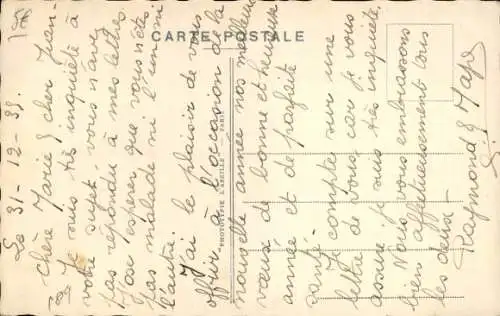 CARTE POSTALE
Le 31-12-35.
Chère Marie & cher Jean
Je suis très inquiète à
votre sujet, vous n'avez
pas répondu à mes lettres
J'ose espérer que vous n'êtes
pas malade ni l'un ni
l'autre.
J'ai le plaisir de vous
offrir à l'occasion de la
nouvelle année nos meilleurs
vœux de bonne et heureuse
année et de parfaite
santé.
Je compte sur une
lettre de vous, car je vous
assure je suis très inquiète.
Nous vous embrassons
bien affectueusement tous
les deux.
Raymond &
PHOTOTYPIE D'ART
PARIS